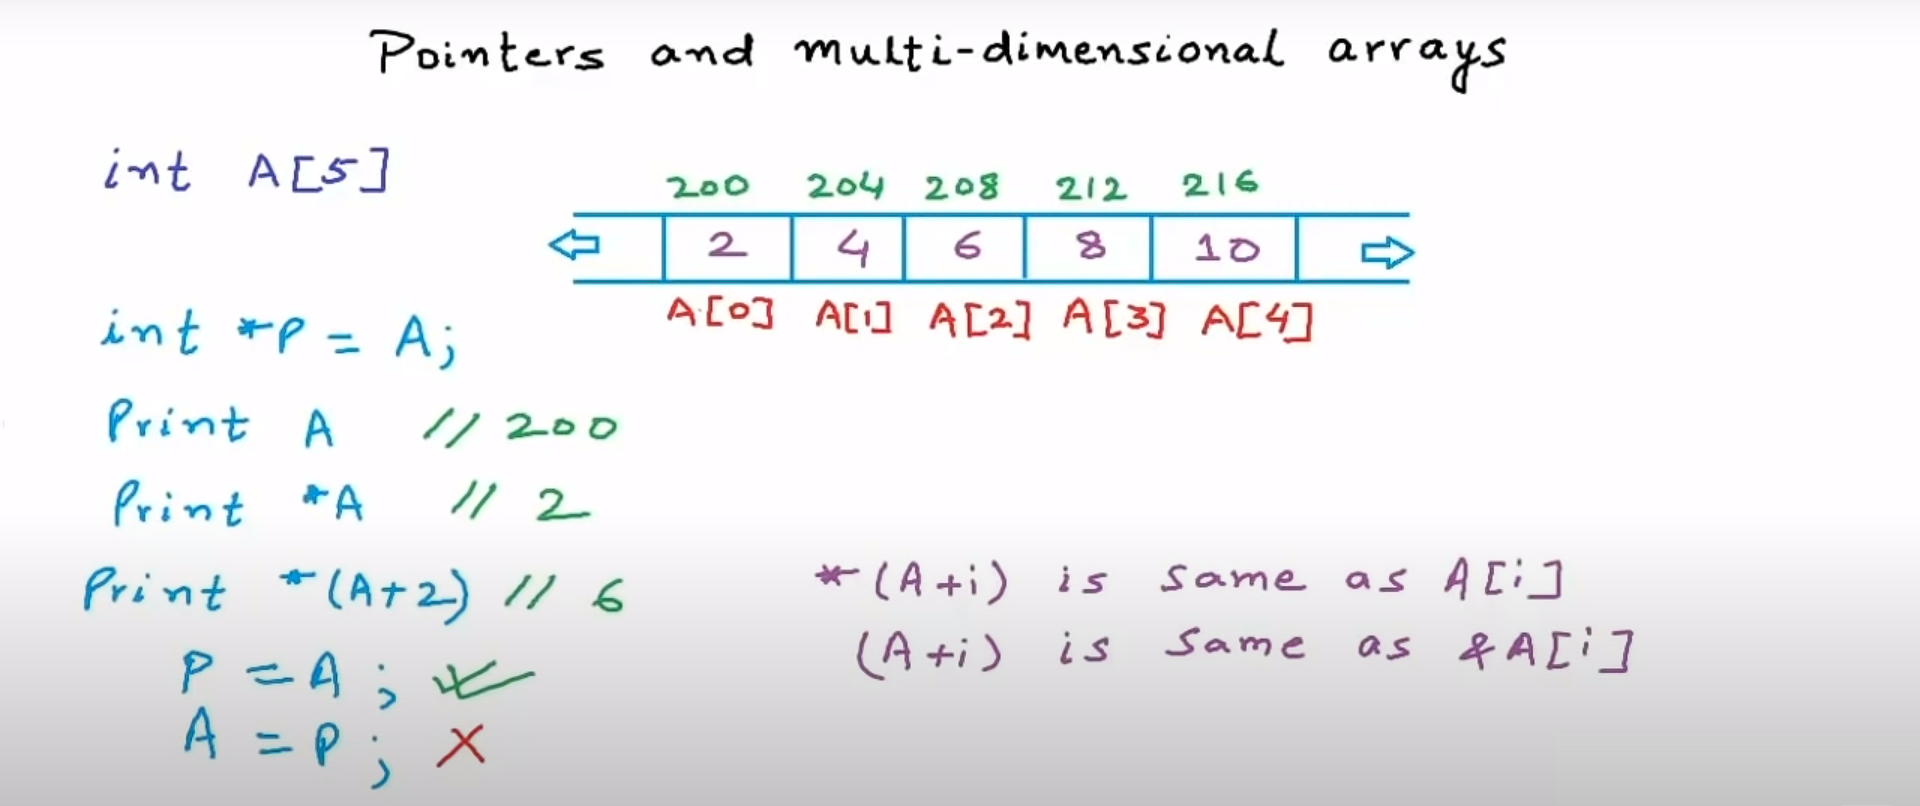 Pointers and multi-dimensional arrays
int A[5]
200 204 208 212 216
2 4 6 8 10
A[0] A[1] A[2] A[3] A[4]
int *P = A;
Print A // 200
Print *A // 2
Print *(A+2) // 6
*(A+i) is same as A[i]
P = A;
(A+i) is same as &A[i]
A = P;